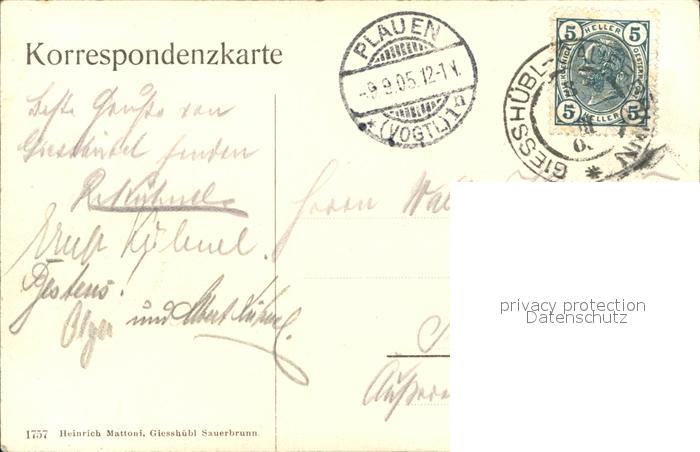 Korrespondenzkarte
PLAUEN
-9.9.05.12-1 V.
*(VOGTL.)1n
5 HELLER 5
5 HELLER 5
GIESSHÜBL-
Beste Grüße von
Giesshübel senden
R. Kühnel
Ernst Kühnel.
Bestens!
und Albert Kühnel.
Herrn
privacy protection
Datenschutz
1757 Heinrich Mattoni, Giesshübl Sauerbrunn.